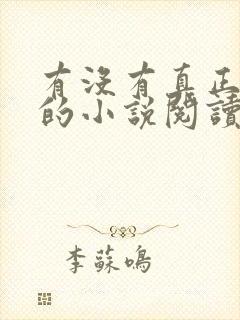 有沒有真正
的小說閱讀
李蘇鳴